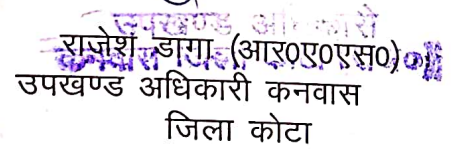 उपखण्ड अधिकारी
राजेश डागा (आर०ए०एस०)
उपखण्ड अधिकारी कनवास
जिला कोटा